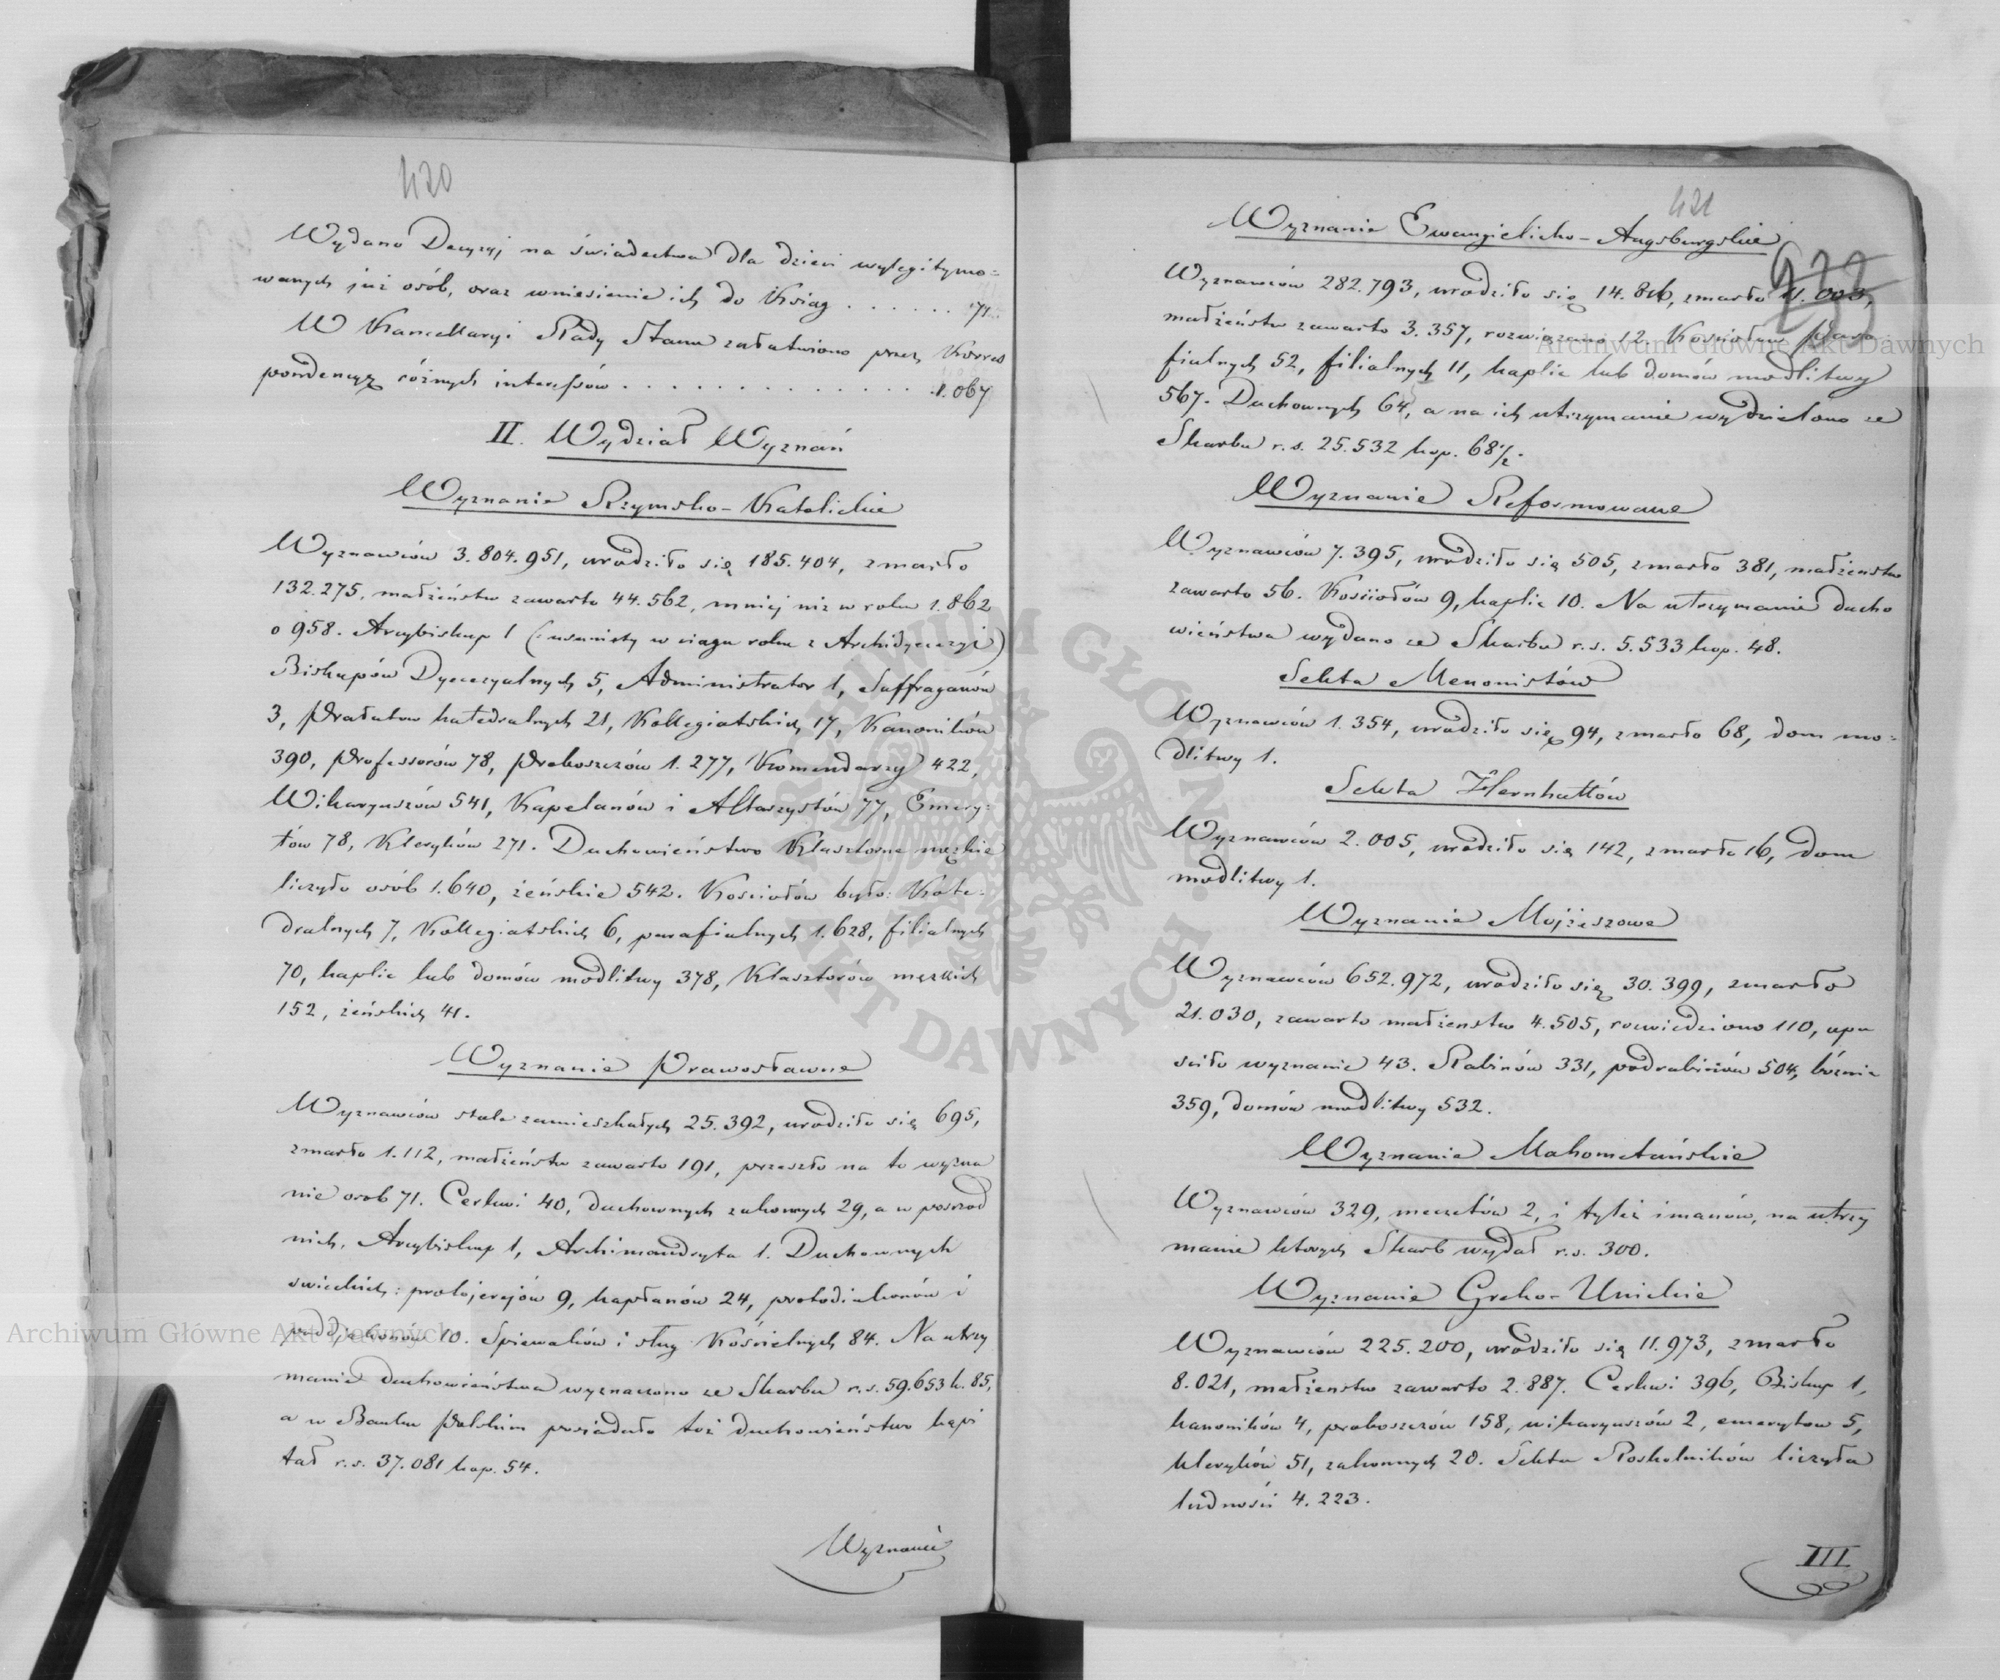 420
Wydano Decyzyj na świadectwa dla dzieci wylegitymo=
wanych już osób, oraz wniesienie ich do Ksiąg . . . . . . 71
W Kancellaryi Rady Stanu załatwiono przez Korres
pondencyę różnych interessów . . . . . . . . . . . . . . 1.067
II. Wydział Wyznań
Wyznanie Rzymsko-Katolickie
Wyznawców 3.804.951, urodziło się 185.404, zmarło
132.275, małżeństw zawarto 44.562, mniej niż w roku 1.862
o 958. Arcybiskup 1 (: usunięty w ciągu roku z Archidyecezyi)
Biskupów Dyecezyalnych 5, Administrator 1, Suffraganów
3, Prałatow katedralnych 21, Kollegiatskich 17, Kanoników
390, Professorów 78, Proboszczów 1.277, Komendarzy 422,
Wikaryuszów 541, Kapelanów i Altarzystów 77, Emery=
tów 78, Kleryków 271. Duchowieństwo Klasztorne męzkie
liczyło osób 1.640, żeńskie 542. Kościołów było: Kate-
dralnych 7, Kollegiatskich 6, parafialnych 1.628, filialnych
70, kaplic lub domów modlitwy 378, Klasztorów męzkich
152, żeńskich 41.
Wyznanie Prawosławne
Wyznawców stale zamieszkałych 25.392, urodziło się 695,
zmarło 1.112, małżeństw zawarto 191, przeszło na to wyzna
nie osob 71. Cerkwi 40, duchownych zakonnych 29, a w posrzod
nich, Arcybiskup 1, Archimandryta 1. Duchownych
swieckich: protojerejów 9, kapłanów 24, protodiakonów i
poddjakonów 10. Spiewaków i sług Kościelnych 84. Na utrzy
manie duchowieństwa wyznaczono ze Skarbu r.s. 59.653 k. 85,
a w Banku Polskim posiadało toż duchowieństwo kapi
tał r.s. 37.081 kop. 54.
Wyznanie
421
Wyznanie Ewangielicko-Augsburgskie
Wyznawców 282.793, urodziło się 14.816, zmarło 11.003,
małżeństw zawarto 3.357, rozwiązano 12. Kościołów para
fialnych 52, filialnych 11, kaplic lub domów modlitwy
567. Duchownych 64, a na ich utrzymanie wydzielono ze
Skarbu r.s. 25.532 kop. 68 1/2.
Wyznanie Reformowane
Wyznawców 7.395, urodziło się 505, zmarło 381, małżenstw
zawarto 56. Kościołów 9, kaplic 10. Na utrzymanie ducho
wieństwa wydano ze Skarbu r.s. 5.533 kop. 48.
Sekta Menonistów
Wyznawców 1.354, urodziło się 94, zmarło 68, dom mo=
dlitwy 1.
Sekta Hernhuttów
Wyznawców 2.005, urodziło się 142, zmarło 16, dom
modlitwy 1.
Wyznanie Mojżeszowe
Wyznawców 652.972, urodziło się 30.399, zmarło
21.030, zawarto małżenstw 4.505, rozwiedziono 110, opu
sciło wyznanie 43. Rabinów 331, podrabinów 504, bóżnic
359, domów modlitwy 532.
Wyznanie Mahometańskie
Wyznawców 329, meczetów 2, i tyleż imanów, na utrzy
manie ktorych Skarb wydał r.s. 300.
Wyznanie Greko-Unickie
Wyznawców 225.200, urodziło się 11.973, zmarło
8.021, małżenstw zawarto 2.887. Cerkwi 396, Biskup 1,
kanoników 4, proboszczów 158, wikaryuszów 2, emerytow 5,
kleryków 51, zakonnych 20. Sekta Roskolników liczyła
ludności 4.223.
III
Archiwum Główne Akt Dawnych
Archiwum Główne Akt Dawnych
ARCHIWUM GŁÓWNE AKT DAWNYCH